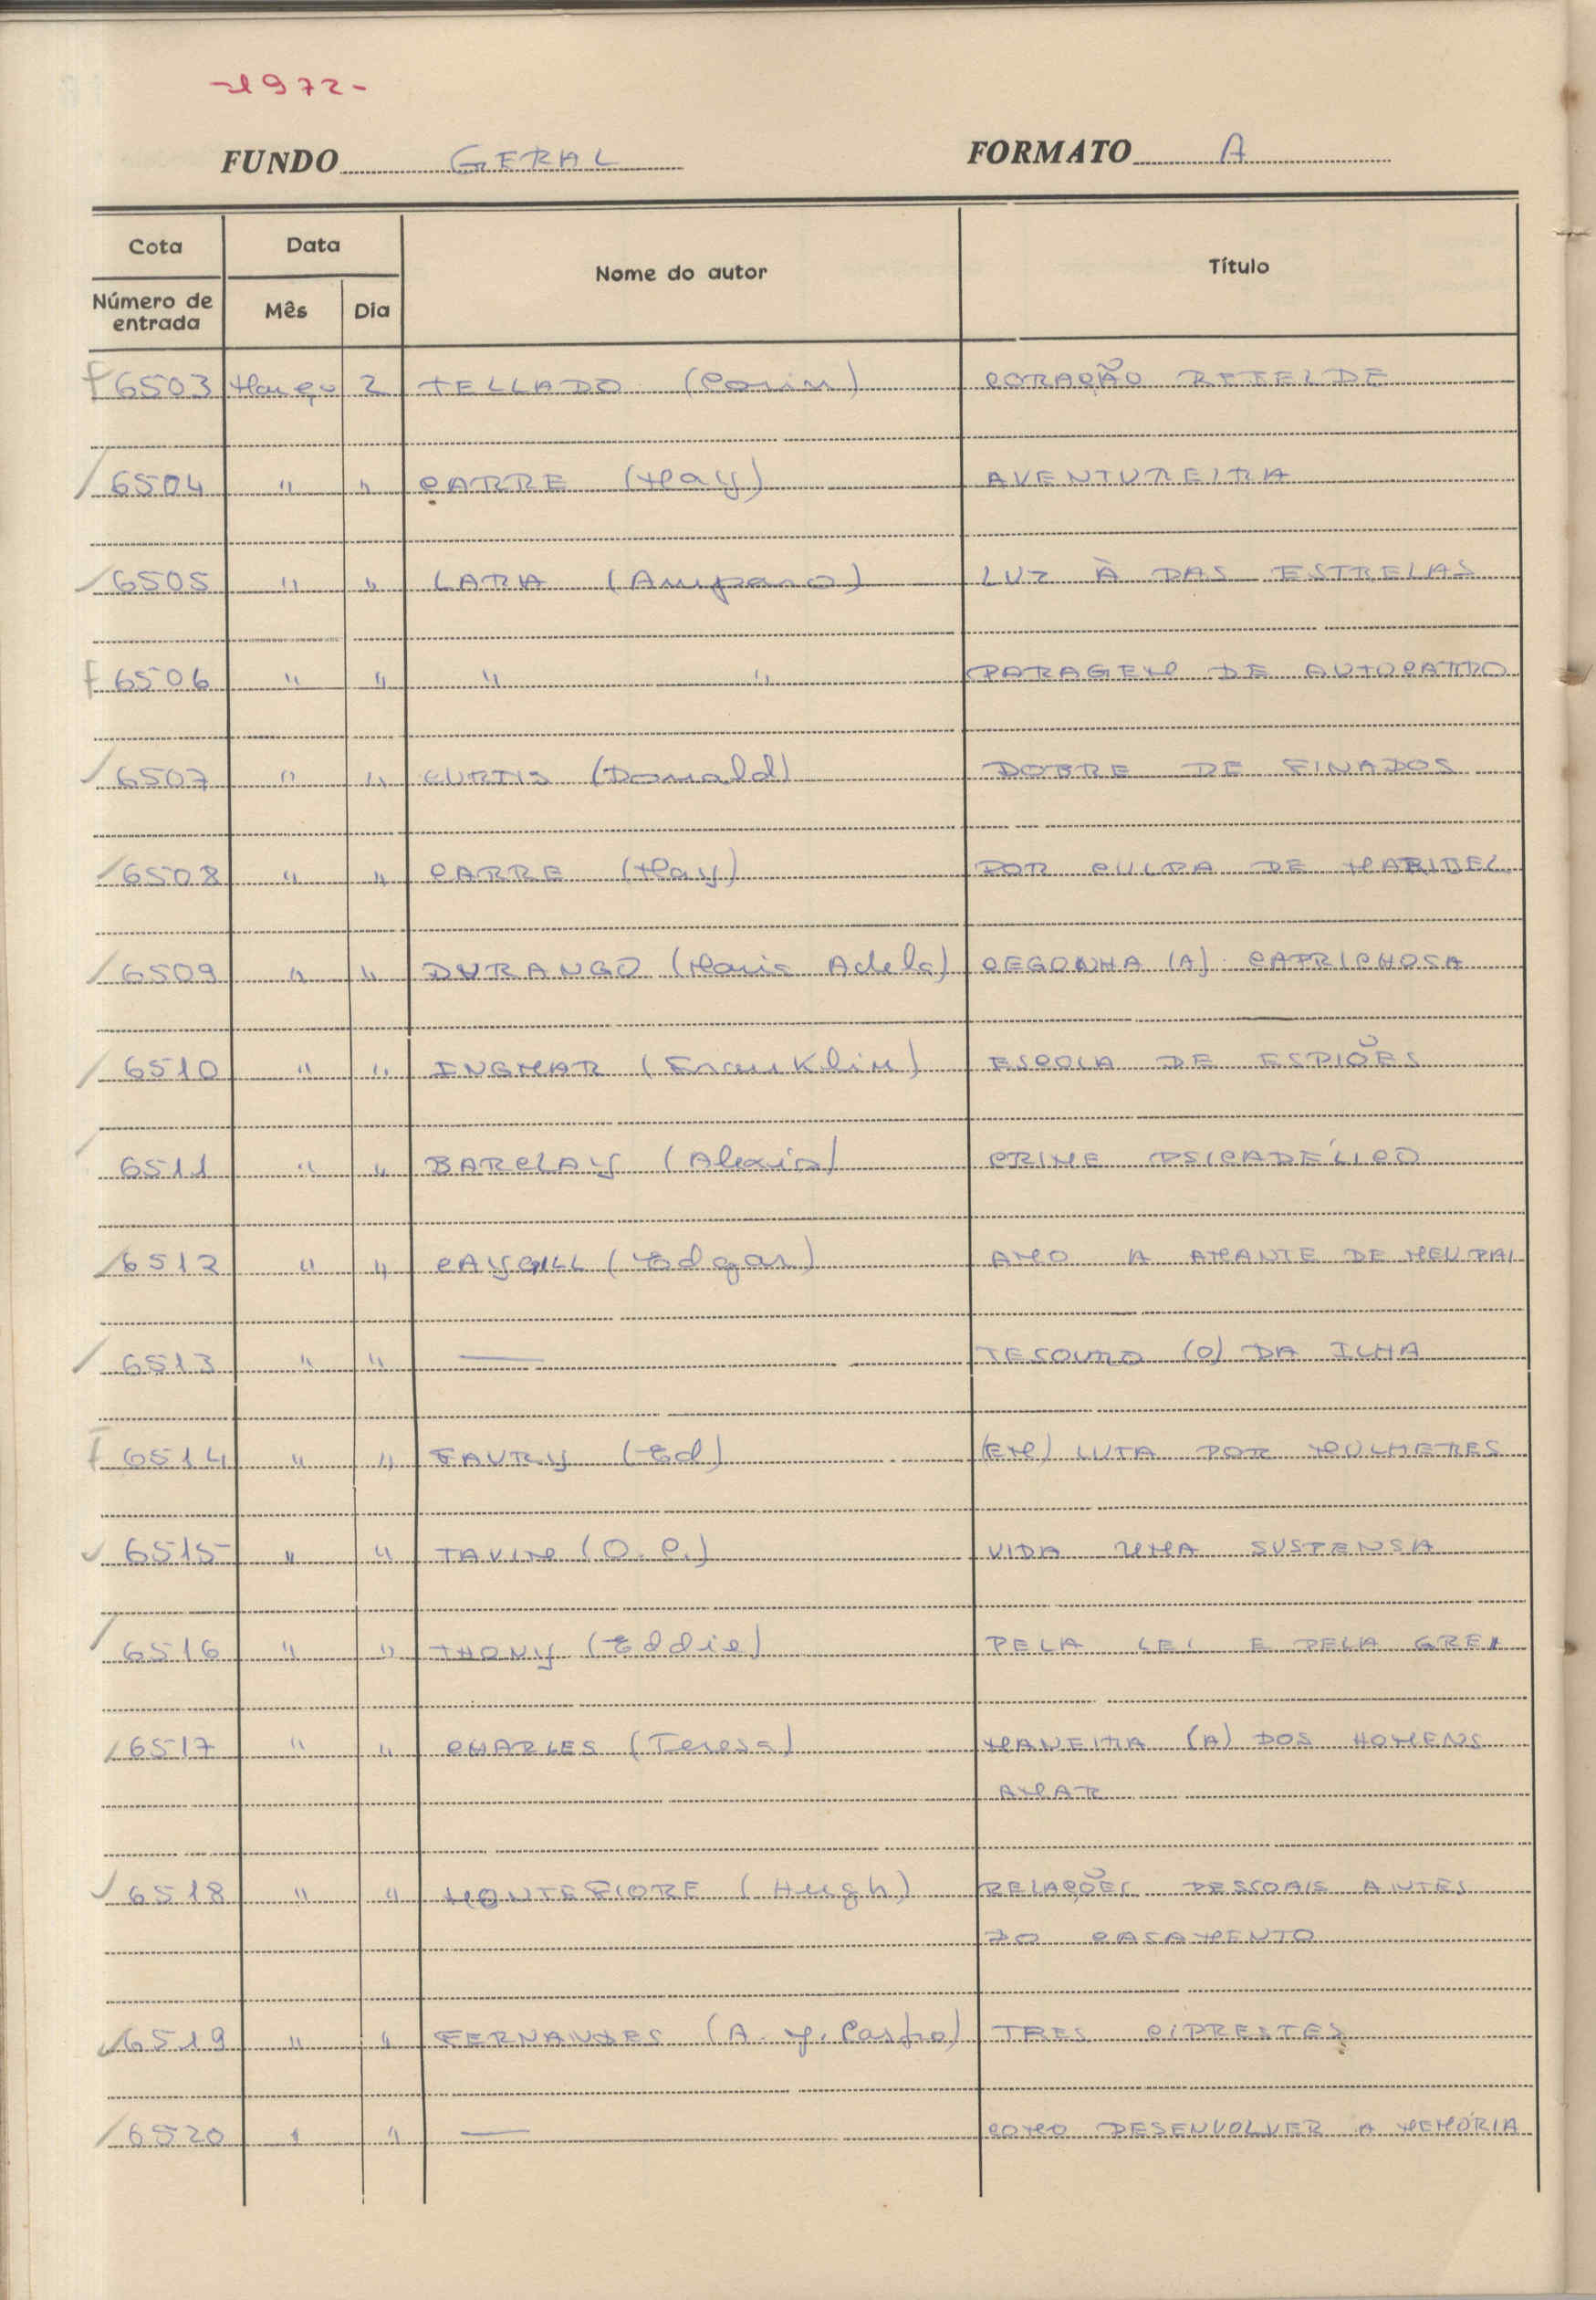 -1972-
FUNDO GERAL FORMATO A
Cota Data Nome do autor Título
Número de entrada Mês Dia
f 6503 Março 2 TELLADO (Corin) CORAÇÃO REBELDE
/ 6504 " " CARRE (May) AVENTUREIRA
/ 6505 " " LARA (Amparo) LUZ À DAS ESTRELAS
f 6506 " " " " PARAGEM DE AUTOCARRO
/ 6507 " " CURTIS (Donald) DOBRE DE FINADOS
/ 6508 " " CARRE (May) POR CULPA DE MARIBEL
/ 6509 " " DURANGO (Maria Adela) CEGONHA (A) CAPRICHOSA
/ 6510 " " INGMAR (Franklin) ESCOLA DE ESPIÕES
/ 6511 " " BARCLAY (Alexis) CRIME PSICADÉLICO
/ 6512 " " CAYGILL (Edgar) AMO A AMANTE DE MEU PAI
/ 6513 " " — TESOURO (O) DA ILHA
f 6514 " " FAURY (Ed) (EM) LUTA POR MULHERES
✓ 6515 " " TAVIN (O. C.) VIDA UMA SUSPENSA
/ 6516 " " THONY (Eddie) PELA LEI E PELA GREI
/ 6517 " " CHARLES (Teresa) MANEIRA (A) DOS HOMENS
AMAR
✓ 6518 " " MONTEFIORE (Hugh) RELAÇÕES PESSOAIS ANTES
DO CASAMENTO
✓ 6519 " " FERNANDES (A. M. Castro) TRES CIPRESTES
/ 6520 " " — COMO DESENVOLVER A MEMÓRIA